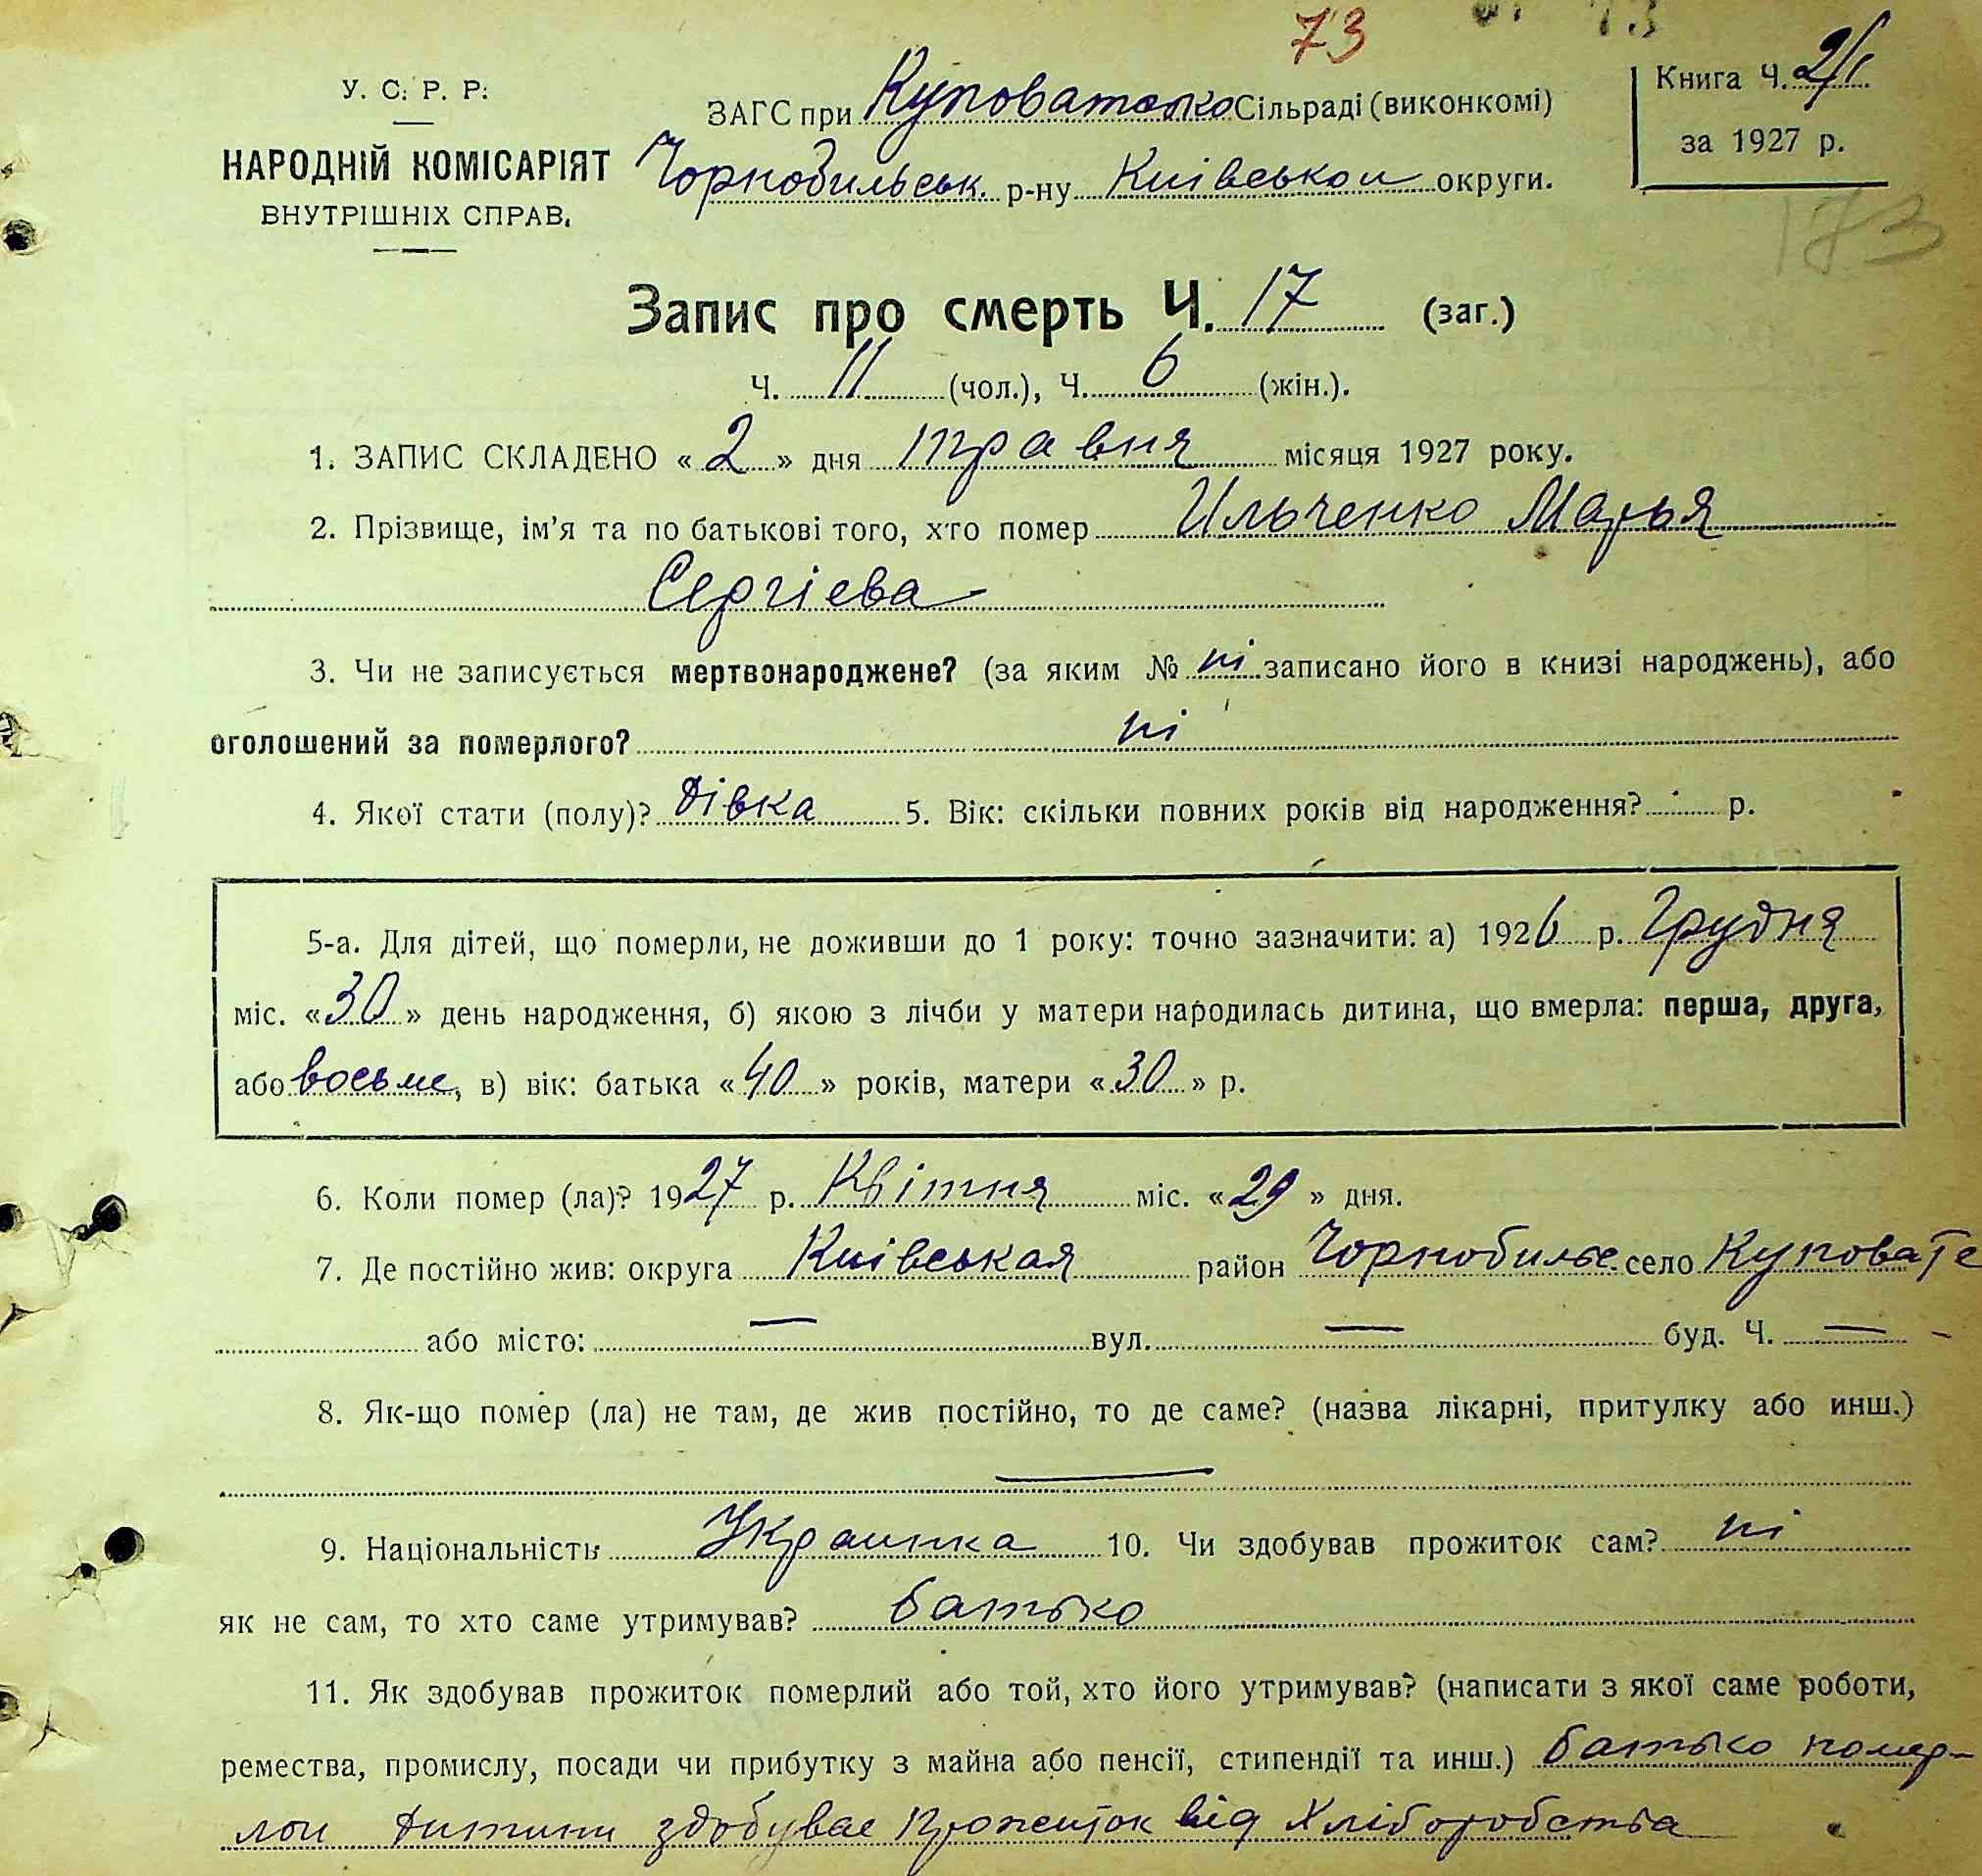 73
У. С. Р. Р.
НАРОДНІЙ КОМІСАРІЯТ
ВНУТРІШНІХ СПРАВ.
ЗАГС при Куповатско Сільраді (виконкомі)
Чорнобильськ. р-ну Київськои округи.
Книга Ч. 2/1
за 1927 р.
173
Запис про смерть Ч. 17 (заг.)
Ч. 11 (чол.), Ч. 6 (жін.).
1. ЗАПИС СКЛАДЕНО «2» дня травня місяця 1927 року.
2. Прізвище, ім'я та по батькові того, хто помер Ильченко Марья
Сергієва
3. Чи не записується мертвонароджене? (за яким № ні записано його в книзі народжень), або
оголошений за померлого? ні
4. Якої стати (полу)? дівка 5. Вік: скільки повних років від народження? р.
5-а. Для дітей, що померли, не доживши до 1 року: точно зазначити: а) 1926 р. Грудня
міс. «30» день народження, б) якою з лічби у матери народилась дитина, що вмерла: перша, друга,
або восьме, в) вік: батька «40» років, матери «30» р.
6. Коли помер (ла)? 1927 р. Квітня міс. «29» дня.
7. Де постійно жив: округа Київськая район Чорнобильс. село Куповате
або місто: — вул. — буд. Ч. —
8. Як-що помер (ла) не там, де жив постійно, то де саме? (назва лікарні, притулку або инш.)
—
9. Національність Украинка 10. Чи здобував прожиток сам? ні
як не сам, то хто саме утримував? батько
11. Як здобував прожиток померлий або той, хто його утримував? (написати з якої саме роботи,
ремества, промислу, посади чи прибутку з майна або пенсії, стипендії та инш.) батько помер-
лои дитини здобувае прожиток від Хліборобства